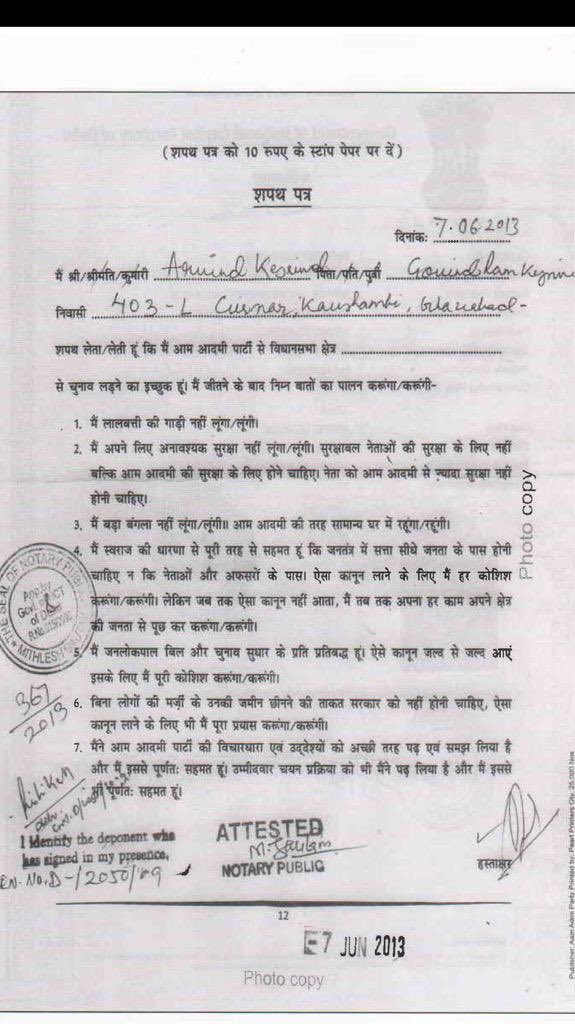 (शपथ पत्र को 10 रूपए के स्टांप पेपर पर दें)
शपथ पत्र
दिनांक: 7.06.2013
मैं श्री/श्रीमति/कुमारी Arvind Kejriwal पिता/पति/पुत्री Gobind Ram Kejriwal
निवासी 403-L Kaushambi, Ghaziabad-
शपथ लेता/लेती हूं कि मैं आम आदमी पार्टी से विधानसभा क्षेत्र
से चुनाव लड़ने का इच्छुक हूं। मैं जीतने के बाद निम्न बातों का पालन करूंगा/करूंगी-
1. मैं लालबत्ती की गाड़ी नहीं लूंगा/लूंगी।
2. मैं अपने लिए अनावश्यक सुरक्षा नहीं लूंगा/लूंगी। सुरक्षाबल नेताओं की सुरक्षा के लिए नहीं
बल्कि आम आदमी की सुरक्षा के लिए होने चाहिए। नेता को आम आदमी से ज्यादा सुरक्षा नहीं
होनी चाहिए।
3. मैं बड़ा बंगला नहीं लूंगा/लूंगी॥ आम आदमी की तरह सामान्य घर में रहूंगा/रहूंगी।
4. मैं स्वराज की धारणा से पूरी तरह से सहमत हूं कि जनतंत्र में सत्ता सीधे जनता के पास होनी
चाहिए न कि नेताओं और अफसरों के पास। ऐसा कानून लाने के लिए मैं हर कोशिश
करूंगा/करूंगी। लेकिन जब तक ऐसा कानून नहीं आता, मैं तब तक अपना हर काम अपने क्षेत्र
की जनता से पूछ कर करूंगा/करूंगी।
5. मैं जनलोकपाल बिल और चुनाव सुधार के प्रति प्रतिबद्ध हूं। ऐसे कानून जल्द से जल्द आएं
इसके लिए मैं पूरी कोशिश करूंगा/करूंगी।
6. बिना लोगों की मर्ज़ी के उनकी जमीन छीनने की ताकत सरकार को नहीं होनी चाहिए, ऐसा
कानून लाने के लिए भी मैं पूरा प्रयास करूंगा/करूंगी।
7. मैंने आम आदमी पार्टी की विचारधारा एवं उद्देश्यों को अच्छी तरह पढ़ एवं समझ लिया है
और मैं इससे पूर्णतः सहमत हूं। उम्मीदवार चयन प्रक्रिया को भी मैंने पढ़ लिया है और मैं इससे
भी पूर्णतः सहमत हूं।
Photo copy
THE SEAL OF NOTARY PUBLIC
MITHLESH
367/2013
I Identify the deponent who
has signed in my presence.
EN. NO. D-/2050/09
ATTESTED
M. Gautam
NOTARY PUBLIC
हस्ताक्षर
12
7 JUN 2013
Photo copy
Publisher: Aam Admi Party Printed by: Pearl Printers Qty. 25,000 Nos